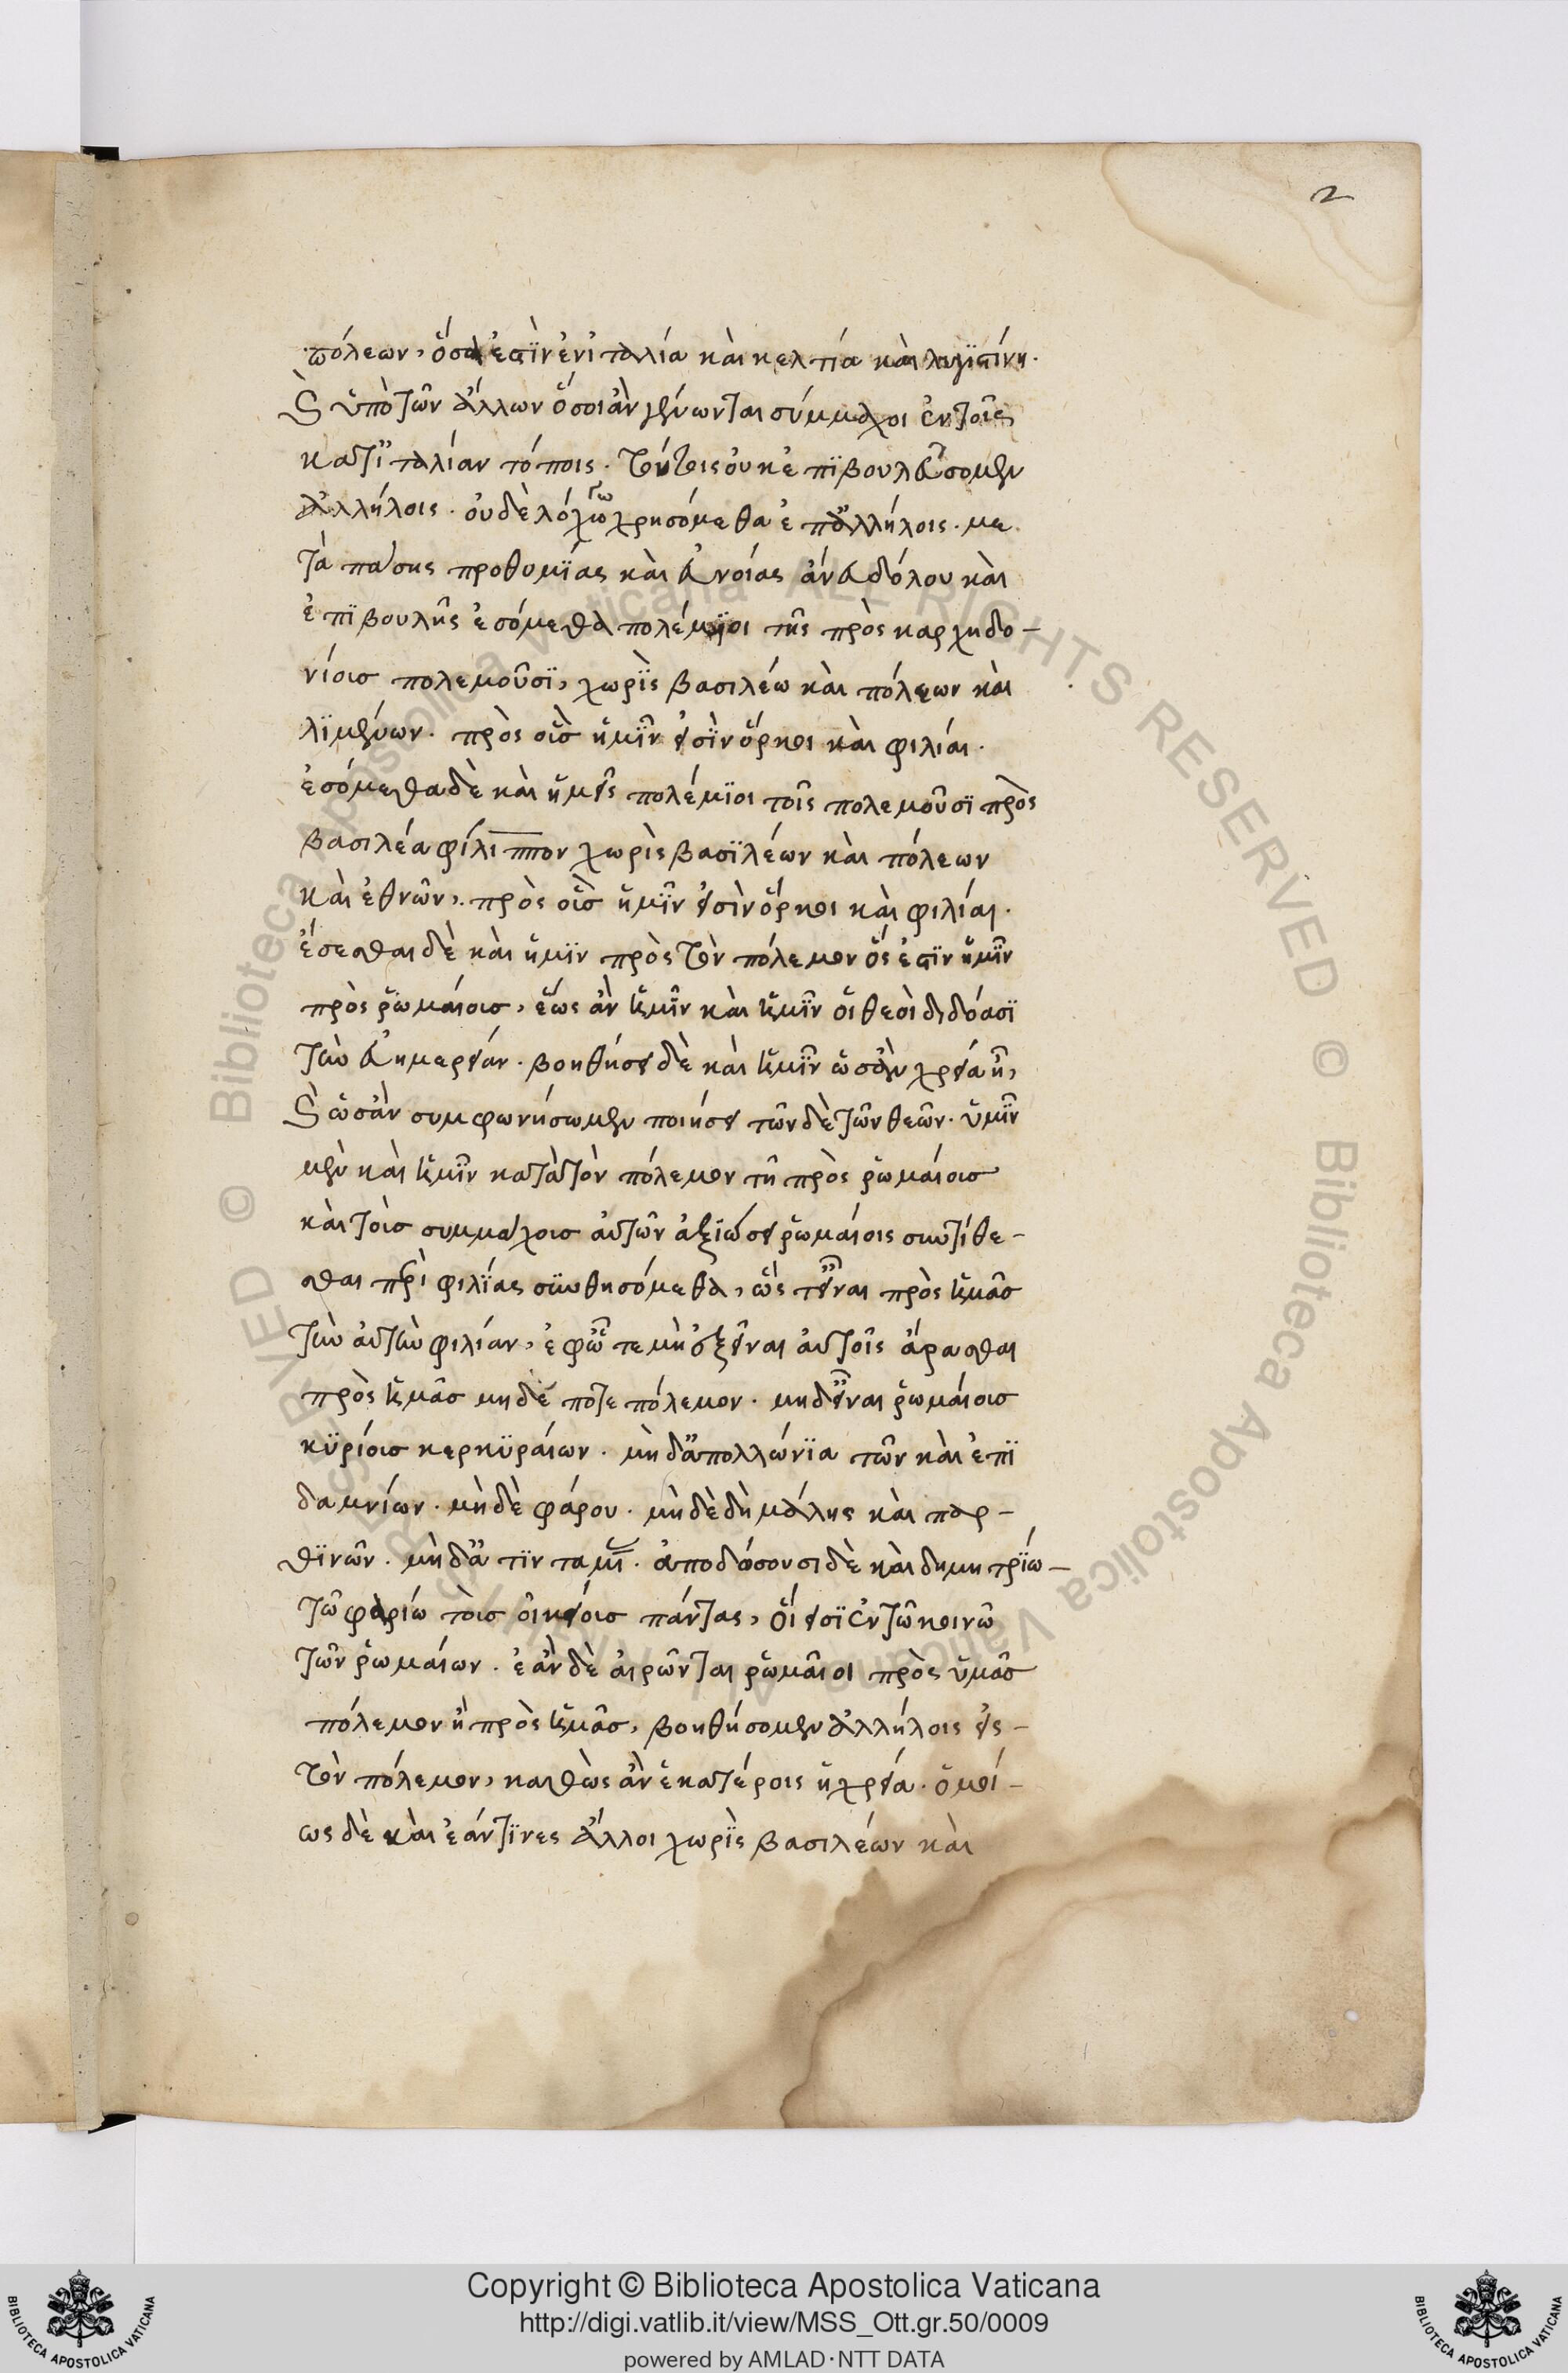 2
πόλεων, ὅσα ἐστὶν ἐν ἰταλία καὶ κελτία καὶ λιγϊστίνη.
καὶ ὑπὸ τῶν ἄλλων ὅσοι ἂν γένωνται σύμμαχοι ἐν τοῖς
κατ ἰταλίαν τόποις. τούτοις οὐκ ἐπϊβουλεύσομεν
ἀλλήλοις. οὐδὲ λόχω χρησόμεθα ἐπ ἀλλήλοις. με
τὰ πάσης προθυμϊας καὶ εὐνοίας ἄνευ δόλου καὶ
ἐπϊβουλῆς ἐσόμεθα πολέμϊοι τῆς πρὸς καρχηδο-
νίοισ πολεμοῦσϊ, χωρϊς βασιλέω καὶ πόλεων καὶ
λϊμένων. πρὸς οἷσ ἡμῖν εἰσὶν ὅρκοι καὶ φιλίαι.
ἐσόμεθα δὲ καὶ ἡμεῖς πολέμϊοι τοῖς πολεμοῦσϊ πρὸς
βασιλέα φίλιππον χωρὶς βασϊλέων καὶ πόλεων
καὶ ἐθνῶν, πρὸς οἷσ ἡμῖν εἰσὶν ὅρκοι καὶ φιλίαι.
ἔσεσθαι δὲ καὶ ἡμϊν πρὸς τὸν πόλεμον ὅς ἐστϊν ἡμῖν
πρὸς ῥωμαίοισ, ἕως ἂν ἡμῖν καὶ ἡμῖν οἱ θεοὶ διδόασϊ
τὴν εὐημερείαν. βοηθήσει δὲ καὶ ἡμῖν ὡσ ἂν χρεία ἦ,
καὶ ὡσ ἂν συμφωνήσωμεν ποιήσει τῶν δὲ τῶν θεῶν. ὑμῖν
μὲν καὶ ἡμῖν κατὰ τὸν πόλεμον τῆ πρὸς ῥωμαίοισ
καὶ τοῖσ συμμάχοισ αὐτῶν ἀξιώσει ῥωμαίοις συντίθε-
σθαι περὶ φιλϊας συνθησόμεθα, ὥς τ εἶναι πρὸς ἡμᾶσ
τὴν αὐτὴν φιλίαν, ἐφ ᾧ τε μὴ ἐξεῖναι αὐτοῖς ἄρασθαι
πρὸς ἡμᾶσ μηδέ ποτε πόλεμον. μηδ εἶναι ῥωμαίοισ
κϋρίοισ κερκϋραίων. μὴ δ ἀπολλώνϊα τῶν καὶ ἐπϊ
δαμνίων. μὴ δὲ φάρου. μὴ δὲ δὴ μάλης καὶ παρ-
θϊνῶν. μὴ δ ἀ τϊν ταμϊ. ἀποδώσουσι δὲ καὶ δημητρϊώ-
τῶ φαρίω τοισ οἰκείοισ πάντας, οἵ εισϊ ἐν τῶ κοινῶ
τῶν ῥωμαίων. ἐὰν δὲ αἱρῶνται ῥωμαῖοι πρὸς ὑμᾶσ
πόλεμον ἢ πρὸς ἡμᾶσ, βοηθήσομεν ἀλλήλοις εἰς-
τὸν πόλεμον, καθὼς ἂν ἑκατέροις ἡ χρεία. ὁμοί-
ως δὲ καὶ ἐάν τϊνες ἄλλοι χωρϊς βασιλέων καὶ
Copyright © Biblioteca Apostolica Vaticana
http://digi.vatlib.it/view/MSS_Ott.gr.50/0009
powered by AMLAD·NTT DATA